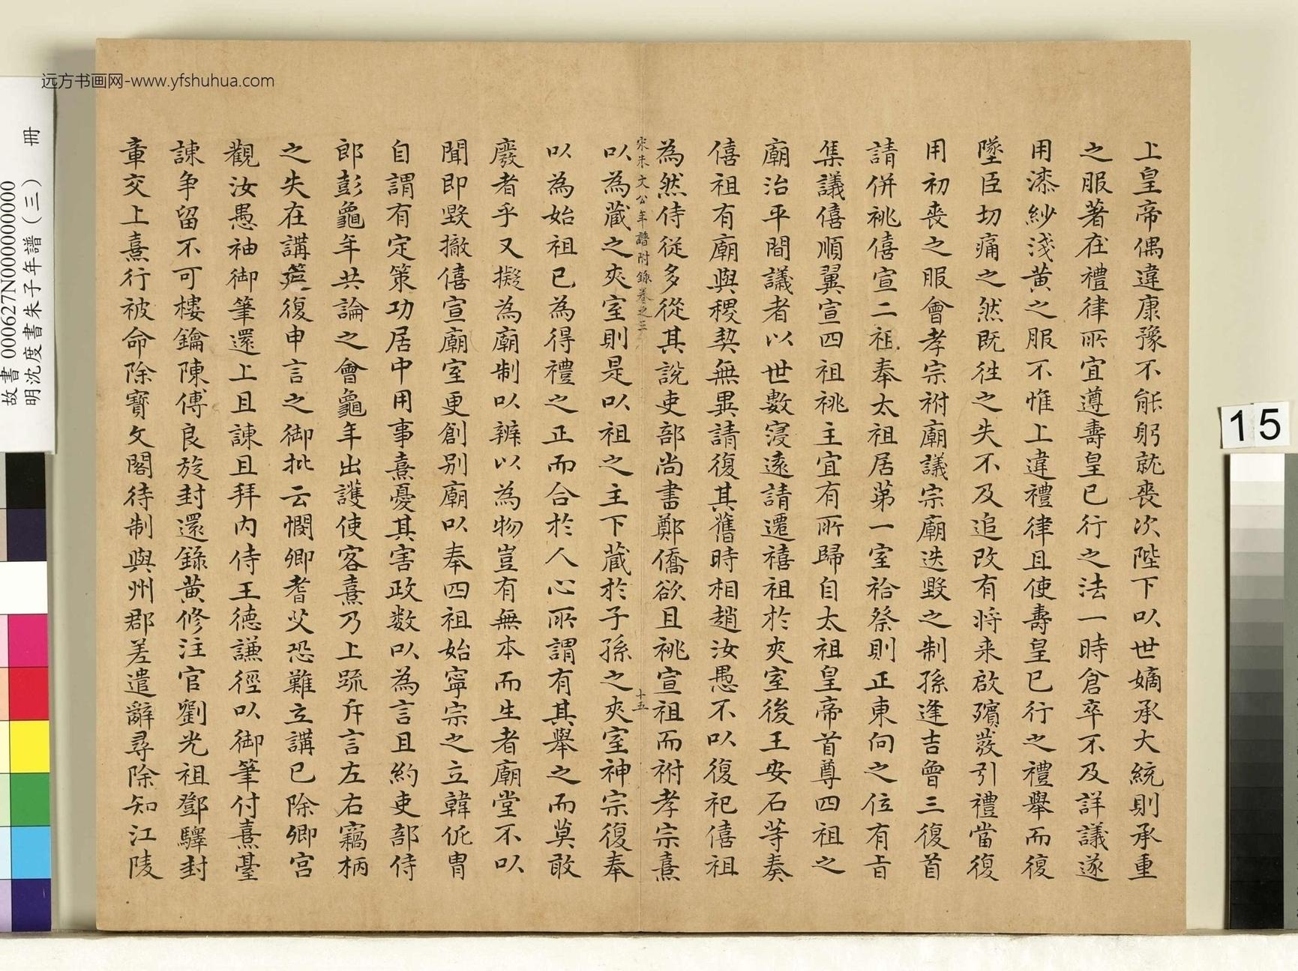 远方书画网-www.yfshuhua.com
故書000627N000000000
明沈度書朱子年譜(三) 冊
15
上皇帝偶違康豫不能躬就喪次陛下以世嫡承大統則承重
之服著在禮律所宜遵壽皇已行之法一時倉卒不及詳議遂
用漆紗淺黃之服不惟上違禮律且使壽皇已行之禮舉而復
墜臣切痛之然既徃之失不及追改有將来啟殯發引禮當復
用初喪之服會孝宗祔廟議宗廟迭毀之制孫逢吉曾三復首
請併祧僖宣二祖奉太祖居第一室祫祭則正東向之位有旨
集議僖順翼宣四祖祧主宜有所歸自太祖皇帝首尊四祖之
廟治平間議者以世數寖遠請遷禧祖於夾室後王安石等奏
僖祖有廟與稷契無異請復其舊時相趙汝愚不以復祀僖祖
為然侍從多從其說吏部尚書鄭僑欲且祧宣祖而祔孝宗熹
宋朱文公年譜附錄卷之三
十五
以為藏之夾室則是以祖之主下藏於子孫之夾室神宗復奉
以為始祖已為得禮之正而合於人心所謂有其舉之而莫敢
廢者乎又擬為廟制以辨以為物豈有無本而生者廟堂不以
聞即毀撤僖宣廟室更創別廟以奉四祖始寧宗之立韓侂冑
自謂有定策功居中用事熹憂其害政數以為言且約吏部侍
郎彭龜年共論之會龜年出護使客熹乃上疏斥言左右竊柄
之失在講筵復申言之御批云憫卿耆艾恐難立講已除卿宮
觀汝愚袖御筆還上且諫且拜內侍王德謙徑以御筆付熹臺
諫争留不可樓鑰陳傅良旋封還錄黃修注官劉光祖鄧驛封
章交上熹行被命除寶文閣待制與州郡差遣辭尋除知江陵